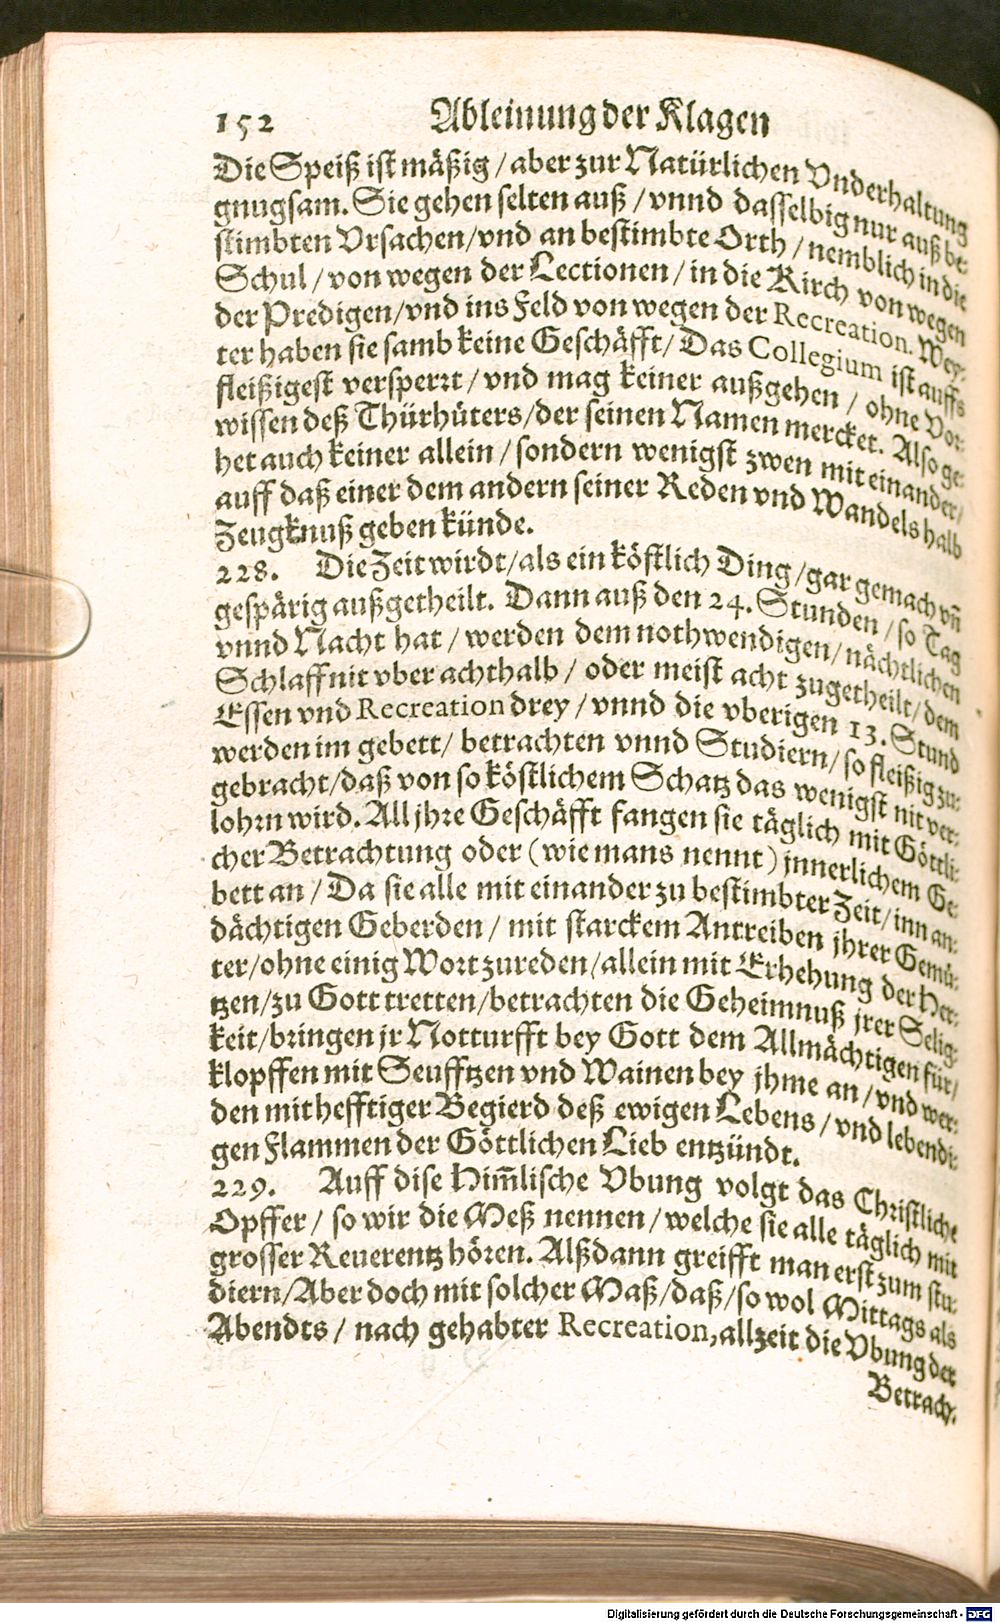 152 Ableinung der Klagen
Die Speiß ist mäßig / aber zur Natürlichen Vnderhaltung
gnugsam. Sie gehen selten auß / vnnd dasselbig nur auß be-
stimbten Vrsachen/vnd an bestimbte Orth / nemblich in die
Schul / von wegen der Lectionen / in die Kirch von wegen
der Predigen/vnd ins Feld von wegen der Recreation. Wey-
ter haben sie samb keine Geschäfft/ Das Collegium ist auffs
fleißigest versperrt / vnd mag keiner außgehen / ohne Vor-
wissen deß Thürhüters/der seinen Namen mercket. Also ge-
het auch keiner allein / sondern wenigst zwen mit einander/
auff daß einer dem andern seiner Reden vnd Wandels halb
Zeugknuß geben künde.
228. Die Zeit wirdt/als ein köstlich Ding /gar gemach vñ
gespärig außgetheilt. Dann auß den 24. Stunden / so Tag
vnnd Nacht hat / werden dem nothwendigen/ nächtlichen
Schlaff nit vber achthalb / oder meist acht zugetheilt/ dem
Essen vnd Recreation drey / vnnd die vberigen 13. Stund
werden im gebett/ betrachten vnnd Studiern/ so fleißig zu-
gebracht/daß von so köstlichem Schatz das wenigst nit ver-
lohrn wird. All jhre Geschäfft fangen sie täglich mit Göttli-
cher Betrachtung oder (wie mans nennt) jnnerlichem Ge-
bett an / Da sie alle mit einander zu bestimbter Zeit/ inn an-
dächtigen Geberden / mit starckem Antreiben jhrer Gemü-
ter/ohne einig Wort zureden/allein mit Erhehung der Her-
tzen/zu Gott tretten/betrachten die Geheimnuß jrer Selig-
keit/bringen jr Notturfft bey Gott dem Allmächtigen für/
klopffen mit Seufftzen vnd Wainen bey jhme an / vnd wer-
den mit hefftiger Begierd deß ewigen Lebens / vnd lebendi-
gen Flammen der Göttlichen Lieb entzündt.
229. Auff dise Him̃lische Vbung volgt das Christliche
Opffer / so wir die Meß nennen / welche sie alle täglich mit
grosser Reuerentz hören. Alßdann greifft man erst zum stu-
diern/Aber doch mit solcher Maß/daß/so wol Mittags als
Abendts / nach gehabter Recreation, allzeit die Vbung der
Betrach-
Digitalisierung gefördert durch die Deutsche Forschungsgemeinschaft - DFG